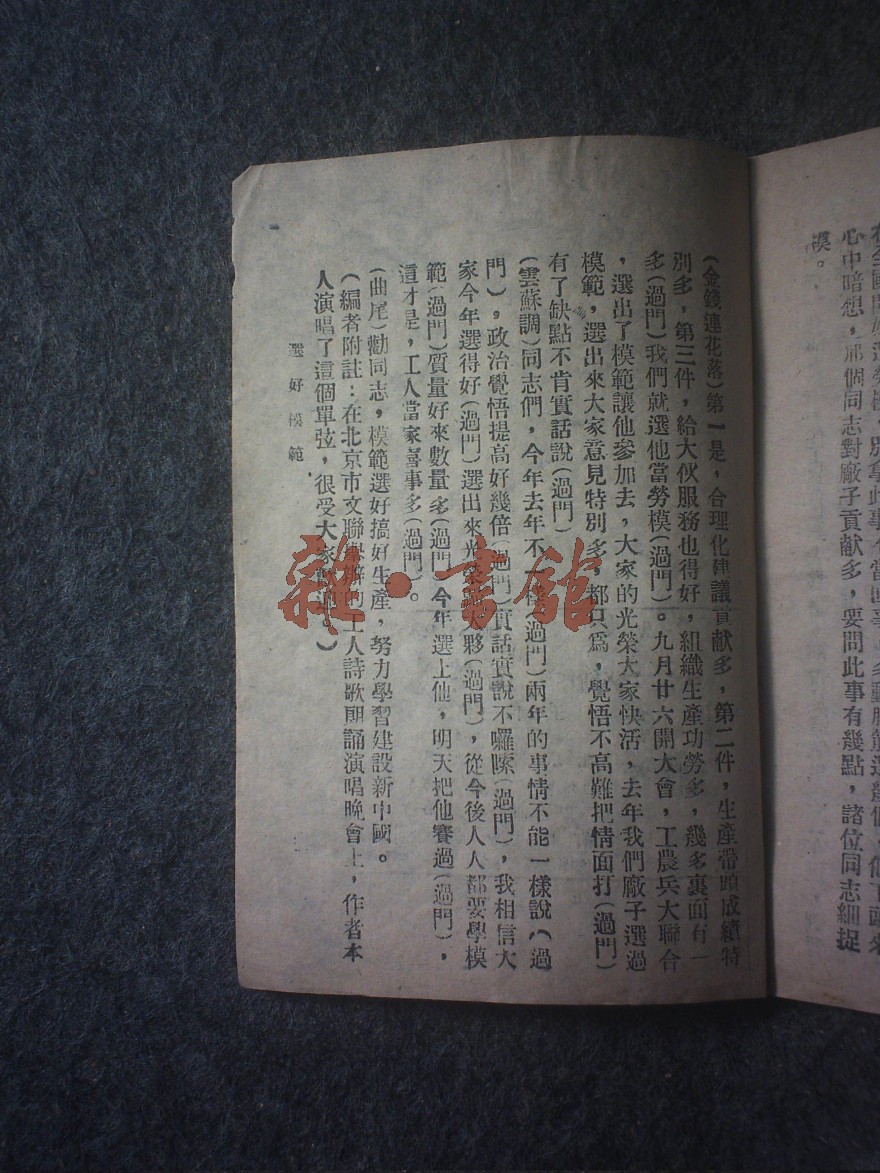 心中暗想，那個同志對廠子貢献多，要問此事有幾點，諸位同志細捉
摸。
(金錢連花落)第一是，合理化建議貢献多，第二件，生產帶頭成績特
別多，第三件，給大伙服務也得好，組織生產功勞多，幾多裏面有一
多(過門)我們就選他當勞模(過門)。九月廿六開大會，工農兵大聯合
，選出了模範讓他參加去，大家的光榮大家快活，去年我們廠子選過
模範，選出來大家意見特別多，都只爲，覺悟不高難把情面打(過門)
有了缺點不肯實話說(過門)
(雲蘇調)同志們，今年去年不一樣(過門)兩年的事情不能一樣說(過
門)，政治覺悟提高好幾倍(過門)實話實說不囉嗦(過門)，我相信大
家今年選得好(過門)選出來光榮 大夥(過門)，從今後人人都要學模
範(過門)質量好來數量多(過門)今年選上他，明天把他賽過(過門)，
這才是，工人當家喜事多(過門)。
(曲尾)勸同志，模範選好搞好生產，努力學習建設新中國。
(編者附註：在北京市文聯 辦的工人詩歌朗誦演唱晚會上，作者本
人演唱了這個單弦，很受大家 。)
選好模範
雜·書館